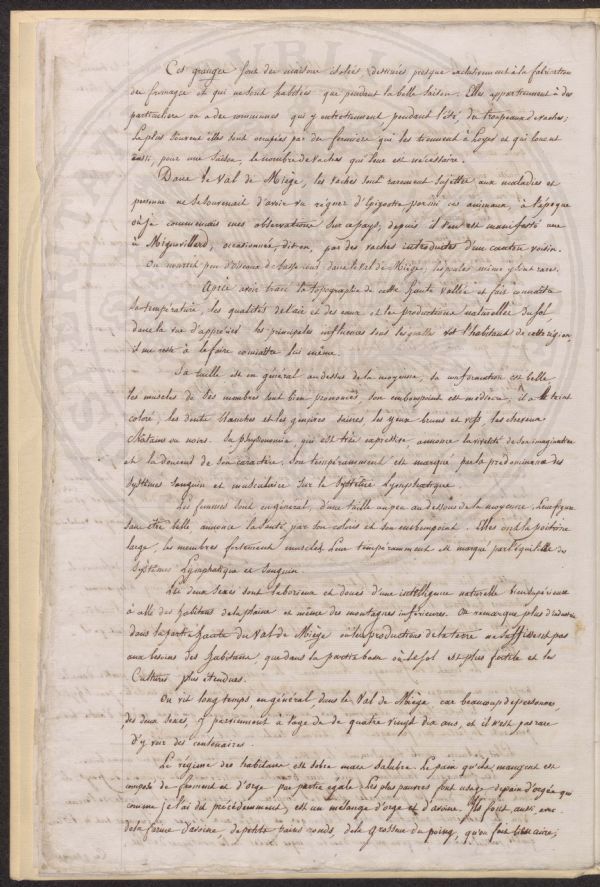 Ces granges sont des maisons isolées, destinées presque exclusivement à la fabrication
des fromages et qui ne sont habitées que pendant la belle saison. Elles appartiennent à des
particuliers ou à des communes qui y entretiennent pendant l'été, des troupeaux de vaches;
le plus souvent elles sont occupées par des fermiers qui les tiennent à loyer et qui louent
aussi, pour une saison, le nombre de vaches qui leur est nécessaire.
Dans le val de Miège, les vaches sont rarement sujettes aux maladies et
personne ne se souvenait d'avoir vu régner d'épizootie parmi ces animaux, à l'époque
où je commençais mes observations sur ce pays; depuis il s'en est manifesté une
à Mignovillard, occasionnée, dit-on, par des vaches introduites d'un canton voisin.
On nourrit peu d'oiseaux de basse cour dans le val de Miège, les poules même y sont rares.
Après avoir tracé la topographie de cette haute vallée et fait connaître
la température, les qualités de l'air et des eaux et les productions naturelles du sol,
dans la vue d'apprécier les principales influences sous lesquelles vit l'habitant de cette région,
il me reste à le faire connaître lui même.
Sa taille est en général au dessus de la moyenne, sa conformation est belle
les muscles de ses membres sont bien prononcés, son embonpoint est médiocre, il a le teint
coloré, les dents blanches et les gencives saines, les yeux bruns et vifs, les cheveux
châtains ou noirs. Sa physionomie qui est très expressive annonce la vivacité de son imagination
et la douceur de son caractère. Son tempéramment est marqué par la prédominance des
systêmes sanguin et musculaire sur le systême lymphatique.
Les femmes sont en général, d'une taille un peu au dessous de la moyenne. Leur figure
sans être belle annonce la santé par son coloris et son embonpoint. Elles ont la poitrine
large, les membres fortement musclés. Leur tempéramment est marqué par l'équilibre des
systêmes lymphatique et sanguin.
Les deux sexes sont laborieux et doués d'une intelligence naturelle bien supérieure
à celle des habitans de la plaine et même des montagnes inférieures. On remarque plus d'industrie
dans la partie haute du Val de Miège où les productions de la terre ne suffisent pas
aux besoins des habitans que dans la partie basse où le sol est plus fertile et les
cultures plus étendues.
On vit long temps en général, dans le Val de Miège car beaucoup de personnes,
des deux sexes, y parviennent à l'age de de quatre vingt dix ans, et il n'est pas rare
d'y voir des centenaires.
Le régime des habitans est sobre mais salubre. Le pain qu'ils mangent est
composé de froment et d'orge par partie égale. Les plus pauvres font usage de pain d'orgée qui
comme je l'ai dit précédemment, est un mélange d'orge et d'avoine. Ils font aussi avec
de la farine d'avoine de petits pains ronds, de la grosseur du poing, qu'on fait bien cuire;